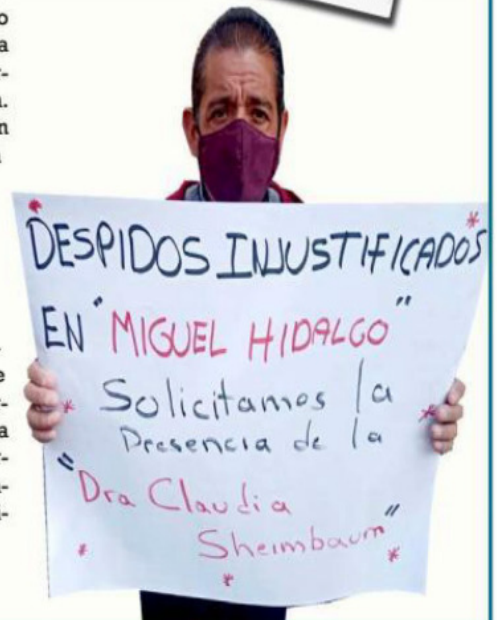 DESPIDOS INJUSTIFICADOS
EN "MIGUEL HIDALGO"
Solicitamos la
Presencia de la
"Dra Claudia
Sheimbaum"